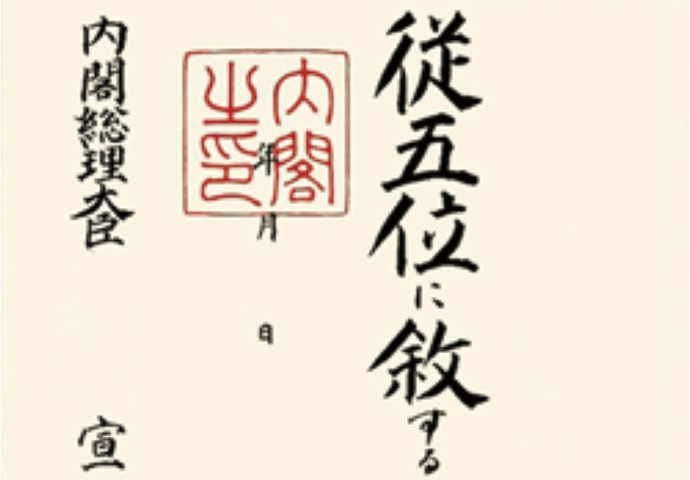 従五位に敘する
年月日
内閣之印
内閣総理大臣 宣